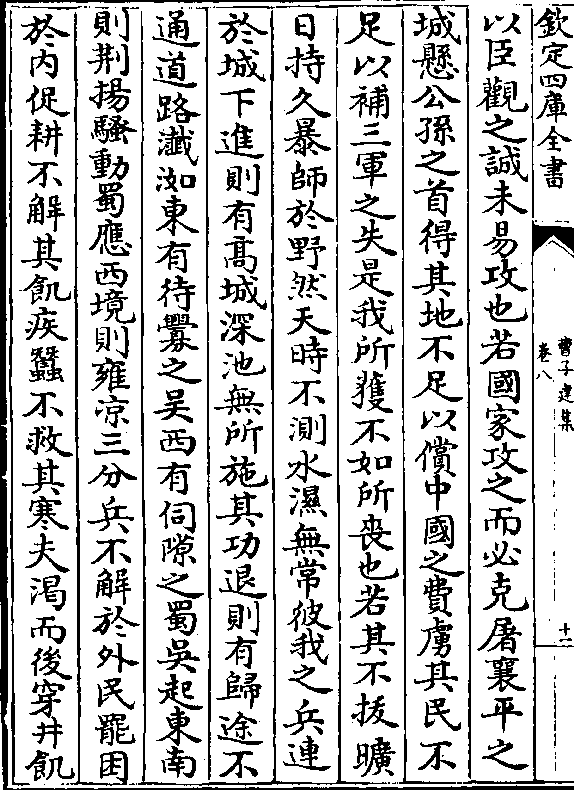 欽定四庫全書
曹子建集
卷八
十一
以臣觀之誠未易攻也若國家攻之而必克屠襄平之
城懸公孫之首得其地不足以償中國之費虜其民不
足以補三軍之失是我所獲不如所喪也若其不拔曠
日持久暴師於野然天時不測水濕無常彼我之兵連
於城下進則有高城深池無所施其功退則有歸途不
通道路瀐洳東有待釁之吳西有伺隙之蜀吳起東南
則荆揚騷動蜀應西境則雍凉三分兵不解於外民罷困
於内促耕不解其飢疾蠶不救其寒夫渴而後穿井飢